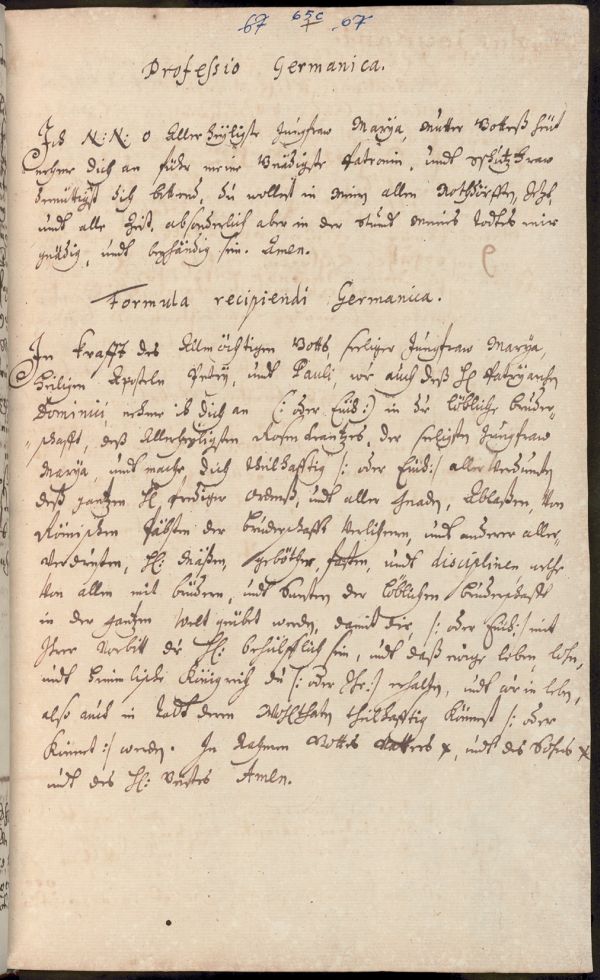 67 65c 67
Professio Germanica.
Ich N: N: o Allerheyligste Jungfraw Marya, Mutter Gotteß heüt
nehme dich an führ meine Gnädigste Patronin, undt Schutz Fraw
demüttigst dich bittend, du wollest in mein allen Nothdürfften, Jetzt,
undt alle Zeit, absonderlich aber in der stundt meines Todtes mir
gnädig, undt beyständig sein. Amen.
Formula recipiendi Germanica.
In Krafft des Allmächtigen Gotts, seeliger Jungfraw Marya,
Heiligen Aposteln Petry, undt Pauli, wie auch deß Hl Patryarchen
Dominici, nehme ich dich an (: oder Eüch :) in die löbliche bruder-
schafft, deß Allerheyligsten Rosen Krantzes, der seeligsten Jungfraw
Marya, undt mache dich theilhafftig /: oder Eüch :/ aller Verdiensten
deß gantzen Hl Prediger Ordenß, undt aller gnaden, Ablaßen, Von
Römischen Päbsten der bruderschafft Verlihenen, undt anderer aller
Verdinsten, Hl: Mäßen, geböther, fasten, undt disciplinen welche
Von allen mit brüdern, undt der löblichen bruderschafft
in der gantzen Welt geübet werden, damit dir, /: oder Eüch :/ mit
Ihrer Vorbitt die Hl: behülfflich sein, undt daß ewige leben, lohn,
undt himmlische Königreich du /: oder Ihr :/ erhalten, undt wie in leben,
also auch in todt deren Wohlthaten theilhafftig Könnest /: oder
Könnet :/ werden. In Nahmen Gottes Vatters +, undt des Sohns +
undt des Hl: Geistes Amen.